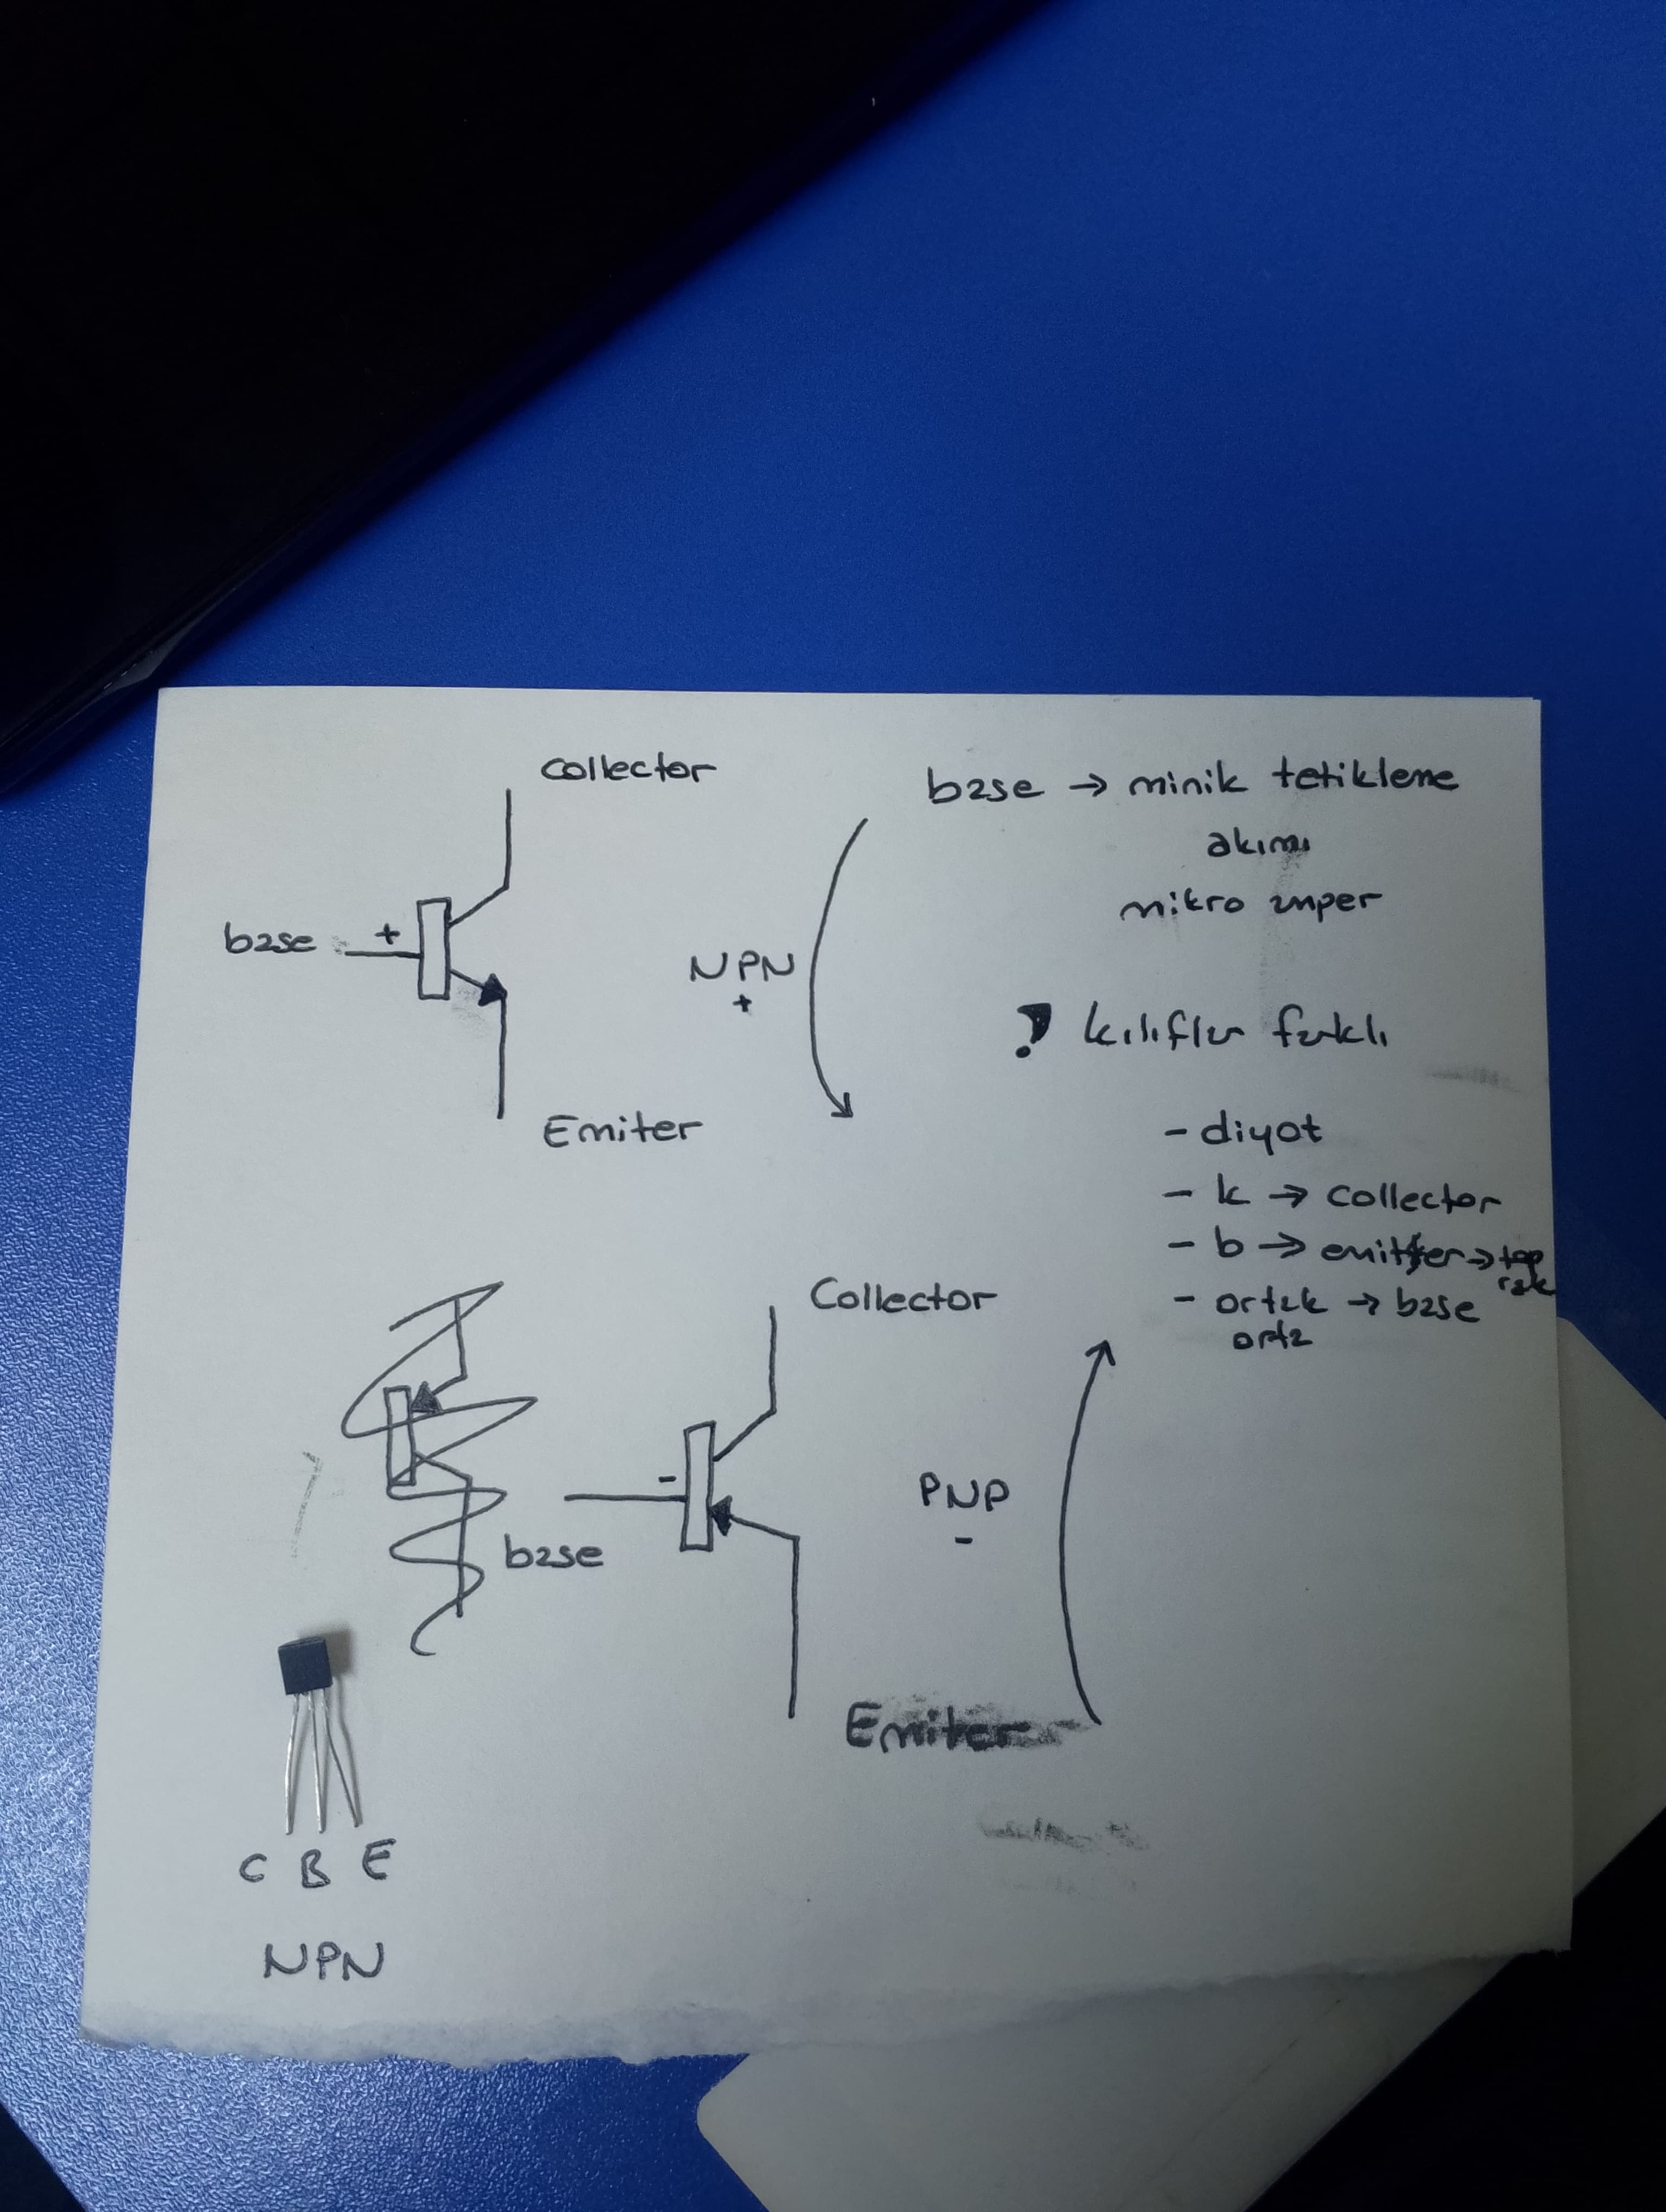 Collector
base
+
NPN
+
Emiter
base → minik tetikleme
akımı
mikro amper
? kılıflar farklı
- diyot
- k → collector
- b → emitter → top
rak
- ortak → base
orta
Collector
-
base
PNP
-
Emiter
C B E
NPN